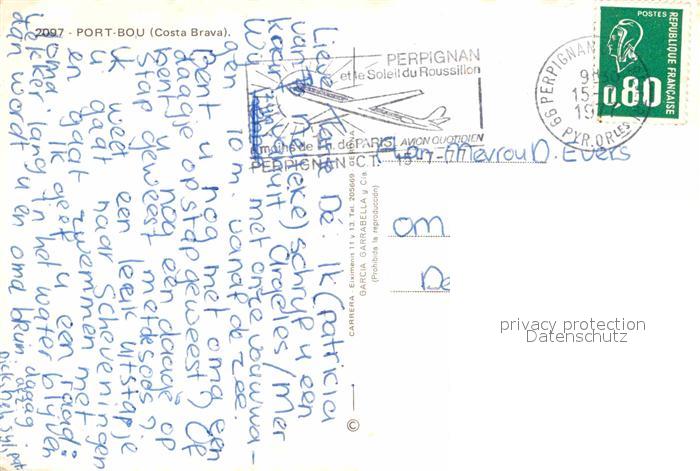 2097 - PORT-BOU (Costa Brava).
POSTES
REPUBLIQUE FRANÇAISE
0,80
PERPIGNAN
66 PYR. ORLES
15-
PERPIGNAN
et le Soleil du Roussillon
à moins de 1 h. de PARIS AVION QUOTIDIEN
PERPIGNAN C.T. 15-7-77
Aan Mevrou D. Evers
om
De
CARRERA - Eiximenis 11 y 13. Tel. 205669 - GERONA
GARCIA GARRABELLA y Cía.
(Prohibida la reproducción)
©
Lieve Tante De. Ik (Patricia
van Mieke) schrijf u een
kaart uit Cradeles/Mer
Wij zijn met onze vouwwa-
gen 10 m. vanaf de zee.
Bent u nog met oma, op
daagje opstap geweest? of
bent u nog een dagje op
stap geweest met de soos?
Ik weet een leuk uitstapje
u gaat naar Scheveningen
en gaat zwemmen met
oma. Ik geef u een raad:
lekker lang in het water blijven
dan wordt u en oma bruin daaag
privacy protection
Datenschutz